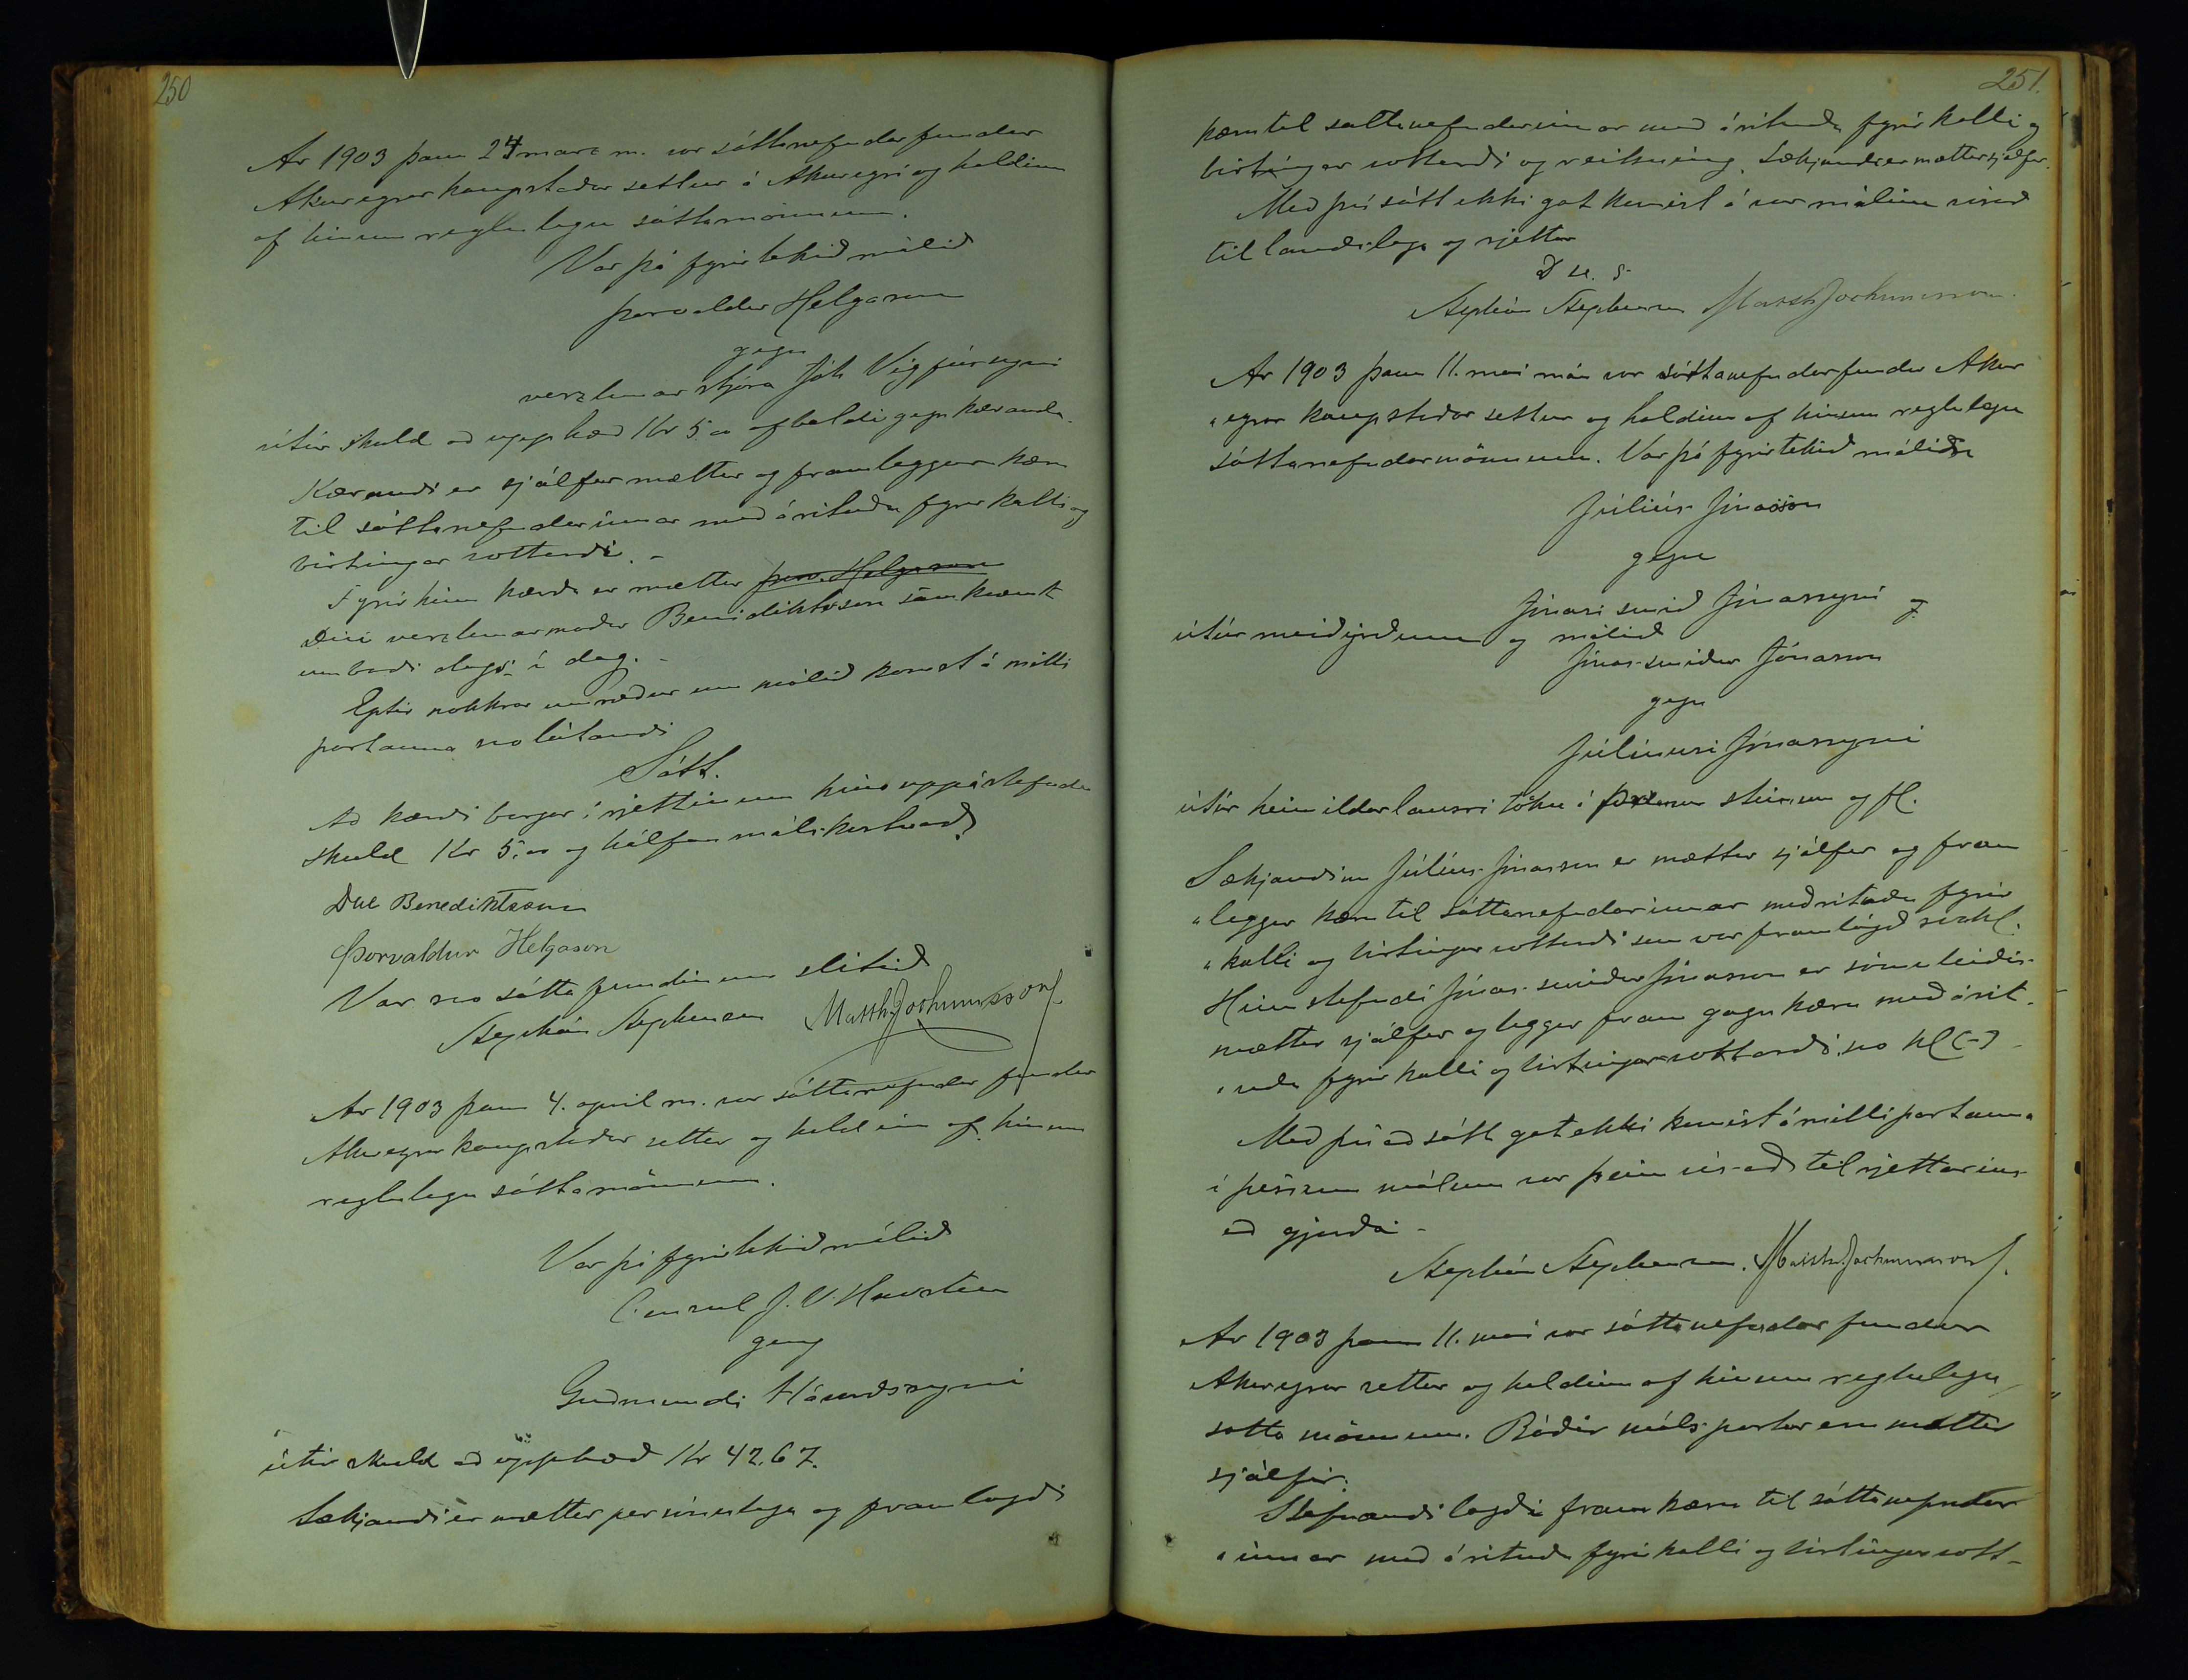 250
Ar 1903 þann 24 marz m. var sáttanefndarfundur
Akureyrarkaupstaðar settur á Akureyri og haldinn
af hinum reglulegu sáttamönnum.
Var þá fyrirtekið málið
Þorvaldur Helgason
gegn
verzlunarstjóra Jóh Vigfússyni
útúr skuld að upphæð Kr 5.00 afhaldi gegn kæranda.
Kærandi er sjálfur mættur og framleggur kæru
til sáttanefndarinnar með árituðu fyrirkalli og
birtingar vottorði. -
Fyrir hinn kærða er mættur Þorv. Helgason
Díi verzlunarmaður Benidiktsson samkvæmt
umboði dags. í dag. -
Eptir nokkrar umræður um málið komst á milli
partanna svo látandi
Sátt.
Að kærði borgar í rjettinum hina uppástefndu
skuld Kr 5.00 og hálfan málskostnað
Dúe Benediktsson
Þorvaldur Helgason
Var svo sáttafundinum slitið
Stephán Stephensen Matth. Jochumsson
Ar 1903 þann 4. april m. var sáttanefndar fundur
Akureyrar kaupstaðar settur og haldinn af hinum
reglulegu sáttamönnum.
Var þá fyrirtekið málið
Consul J. V. Havsteen
gegn
Guðmundi
útúr skuld að upphæð Kr 42.67.
Sækjandi er mættur persónulega og framlagði
251.
kæru til sáttanefndarinnar með árituðu fyrirkalli og
birtingar vottorði og reikning. Sækjandi er mættur sjálfur.
Með því sátt ekki gat komist á var málinu vísað
til landslaga og rjettar
D u. s.
Stephán Stephensen Matth Jochumsson.
Ar 1903 þann 11. mai mán var sáttanefndarfundur Akur
„eyrar kaupstaðar settur og haldinn af hinum reglulegu
sáttanefndarmönnum. Var þá fyrirtekið málið
Júlíus Jónasson
gegn
Jónasi smið Jónassyni
útúr meiðyrðum og málið
Jónas smiður Jónasson
gegn
Júlíusi Jónassyni
útúr heimildarlausri töku á steinum og fl.
Sækjandinn Júlíus Jónasson er mættur sjálfur og fram
„leggur kæru til sáttanefndarinnar með rituðu fyrir
„kalli og birtingar vottorði sem var framlögð
Hinn stefndi Jónas smiður Jónasson er sömuleiðis
mættur sjálfur og leggur fram gagnkæru með árit-
„uðu fyrirkalli og birtingarvottorði svo hl (-)
Með því að sátt gat ekki komist á milli partanna
í þessum málum var þeim vísað til rjettarins
að gjörða -
Stephán Stephensen. Matth. Jochumsson
Ar 1903 þann 11. mai var sáttanefndar fundur
Akureyrar settur og haldinn af hinum reglulegu
sátta mönnum. Báðir málspartar eru mættir
sjálfir.
Stefnandi lagði fram kæru til sáttanefndar
„innar með árituðu fyrirkalli og birtingarvott-